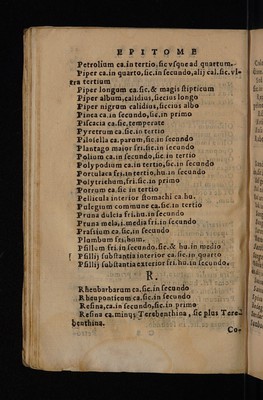 EPITOME
Petrolium ca.in tertio, sic vsque ad quartum.
Piper ca.in quarto, sic.in secundo, alij cal.sic.vl-
tra tertium
Piper longum ca.sic.& magis stipticum
Piper album, calidius, siccius longo
Piper nigrum calidius, siccius albo
Pinea ca.in secundo, sic.in primo
Piscacia ca.sic.temperate
Pyretrum ca.sic.in tertio
Pilosella ca.parum, sic.in secundo
Plantago maior fri.sic.in secundo
Polium ca.in secundo, sic.in tertio
Polypodium ca.in tertio, sic.in secundo
Portulaca fri.in tertio, hu.in secundo
Polytrichum, fri.sic.in primo
Porrum ca.sic in tertio
Pellicula interior stomachi ca.hu.
Pulegium commune ca.sic.in tertio
Pruna dulcia fri.hu.in secundo
Pruna mela, i.media fri.in secundo
Prassium ca.sic.in secundo
Plumbum fri.hum.
Psilium fri.in secundo.sic.& hu.in medio
Psillij substantia interior ca.sic.in quarto
Psillij substantia exterior fri.hu.in secundo.
R.
Rheubarbarum ca.sic.in secundo
Rheuponticum ca.sic.in secundo
Resina, ca.in secundo, sic.in primo
Resina ca.minus Terebenthina, sic plus Tere-
benthina.
Co-